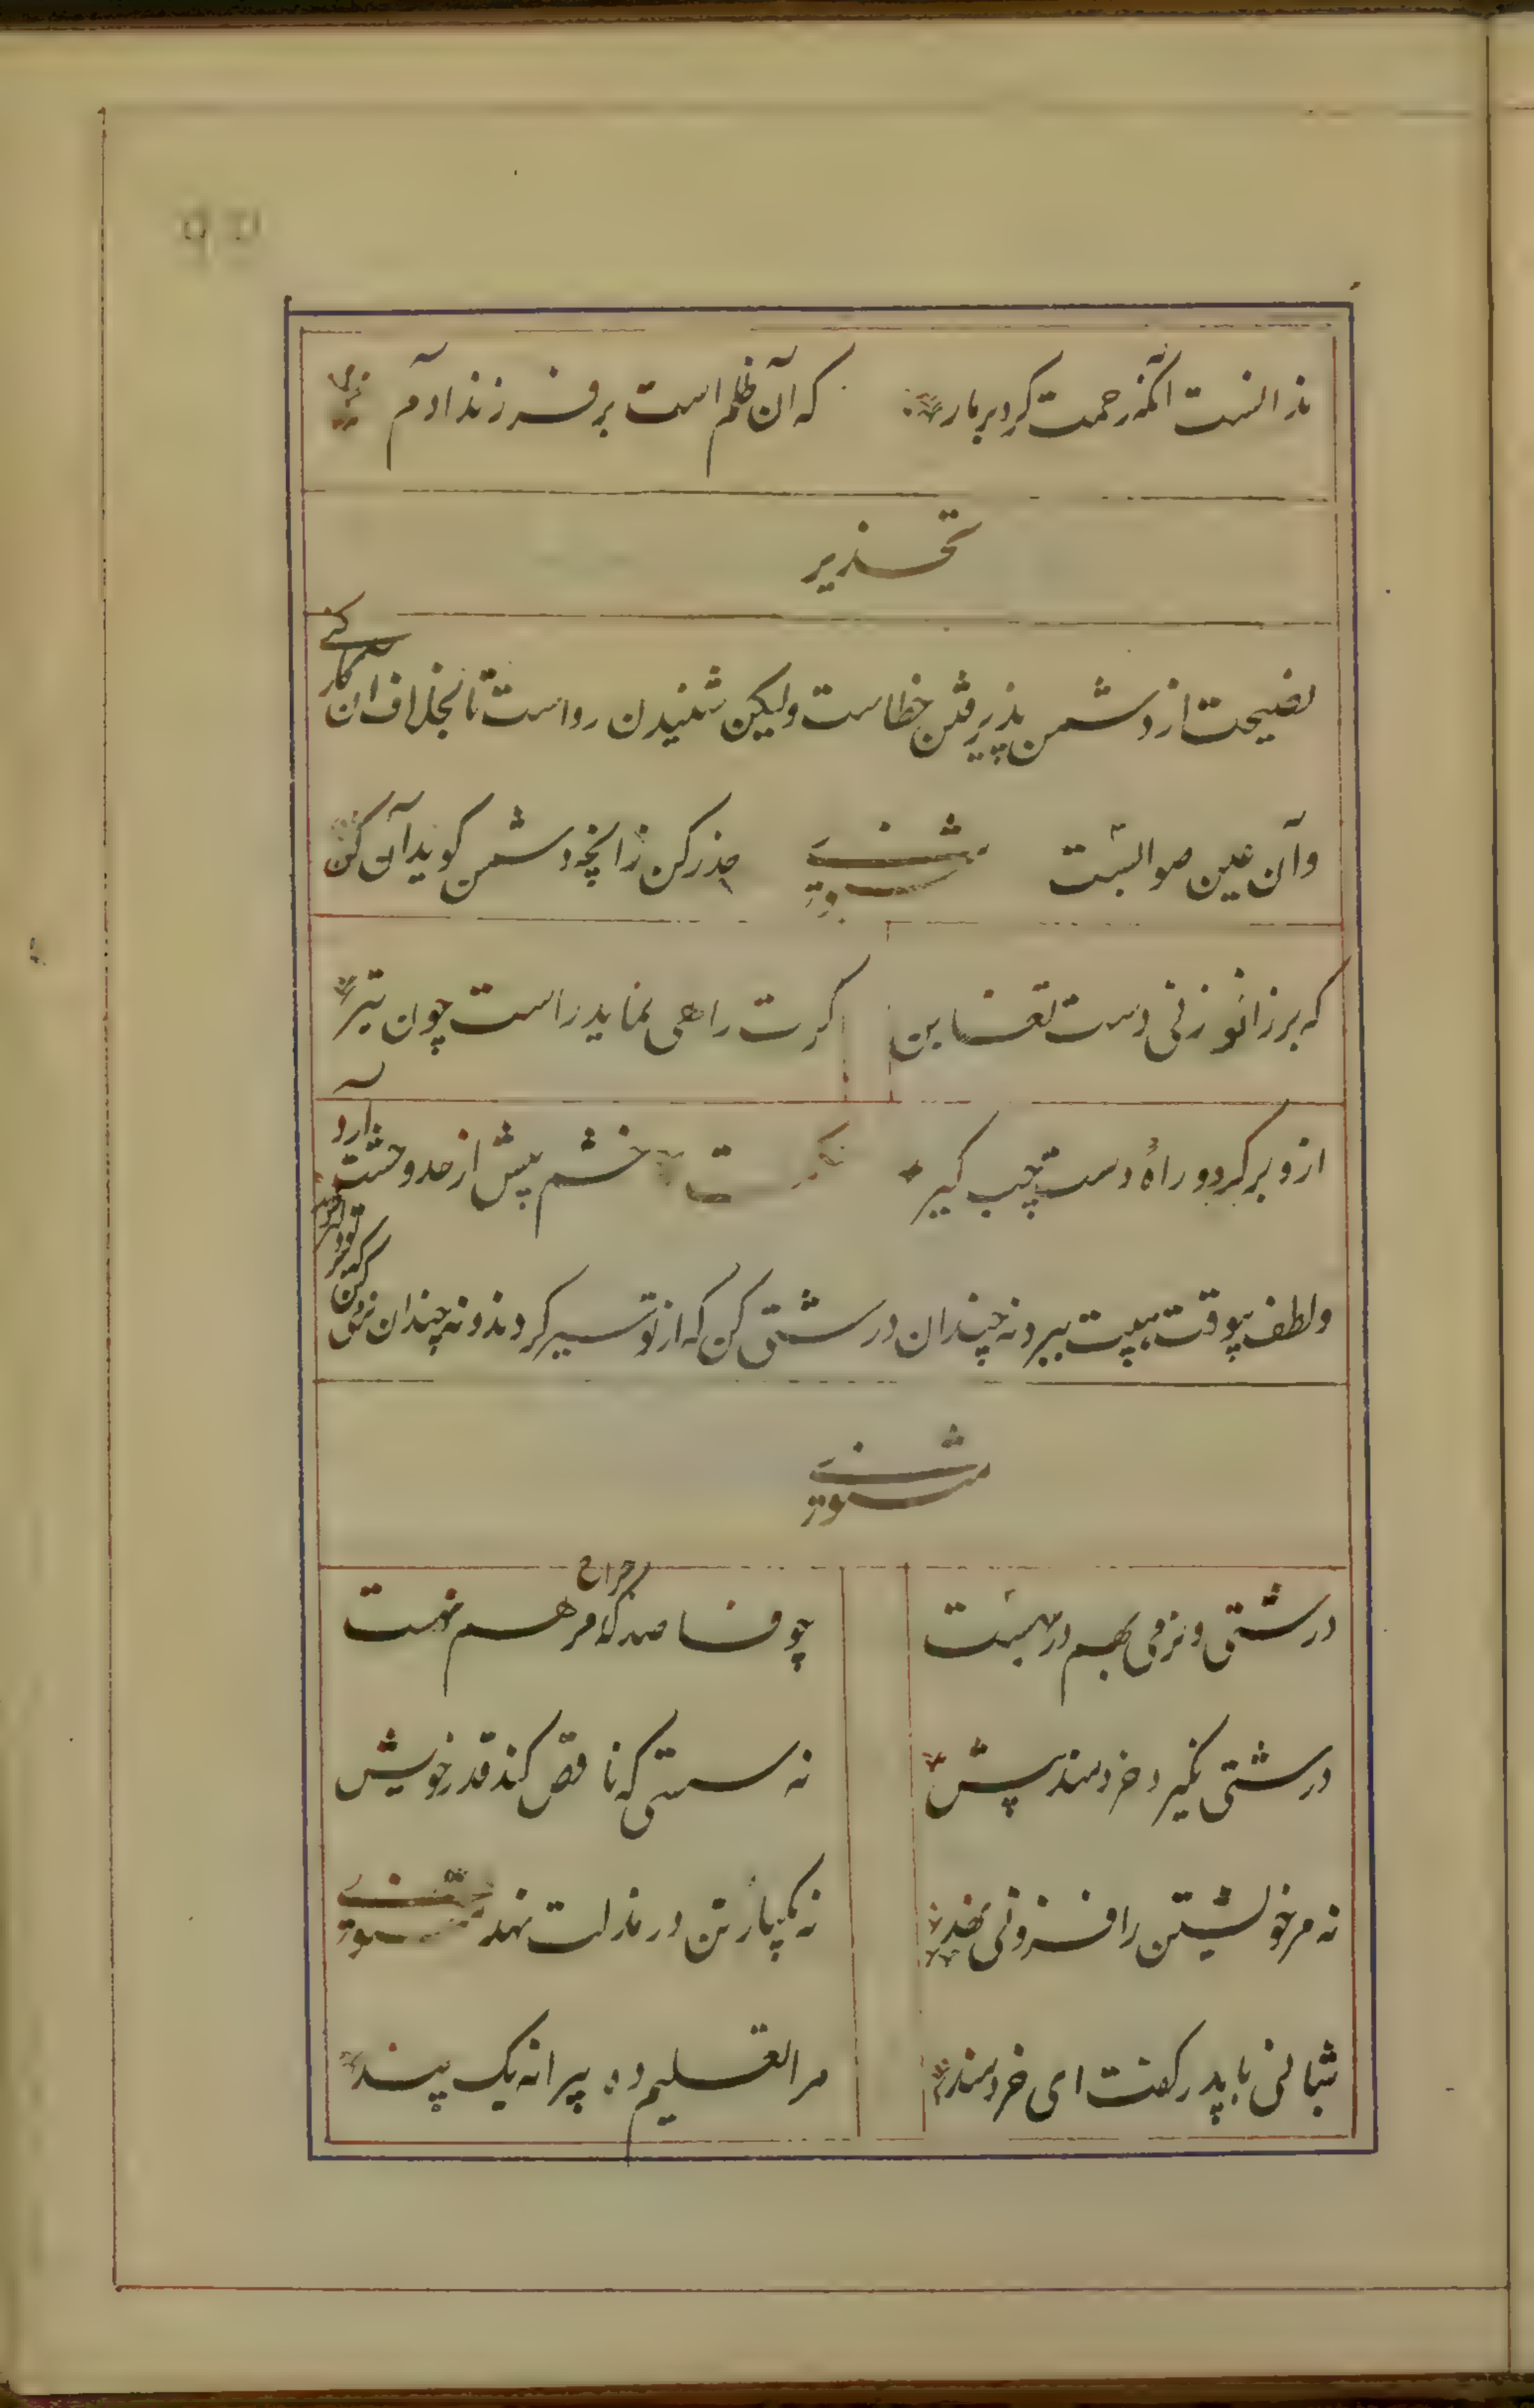 ندانست آنکه رحمت کرد بر مار که آن ظلم است بر فرزند آدم
تحذیر
نصیحت از دشمن پذیرفتن خطاست ولیکن شنیدن رواست تا بخلاف ان کار کنے
وآن عین صوابست مثنوی حذر کن زانچه دشمن کوید آن کن
که بر زانو زنی دست تغابن کرت راهی نماید راست چون تیر
ازو برکرد و راه دست چپ کیر حکمت خشم بیش از حد وحشت آرد
ولطف بیوقت هیبت ببرد نه چندان درشتی کن که از تو سیر کردند و نه چندان نرمی کن که بر تو دلیر
مثنوی
درشتی و نرمی بهم در بهست چو فاصد که جراح مرهم نهست
درشتی نکیرد خردمند پیش نه سستی که ناقص کند قدر خویش
نه مر خویشتن را فزونی نهد نه یکپاره تن در مذلت نهد مثنوی
شبانی با پدر کفت ای خردمند مرا تعلیم ده پیرانه یک پند